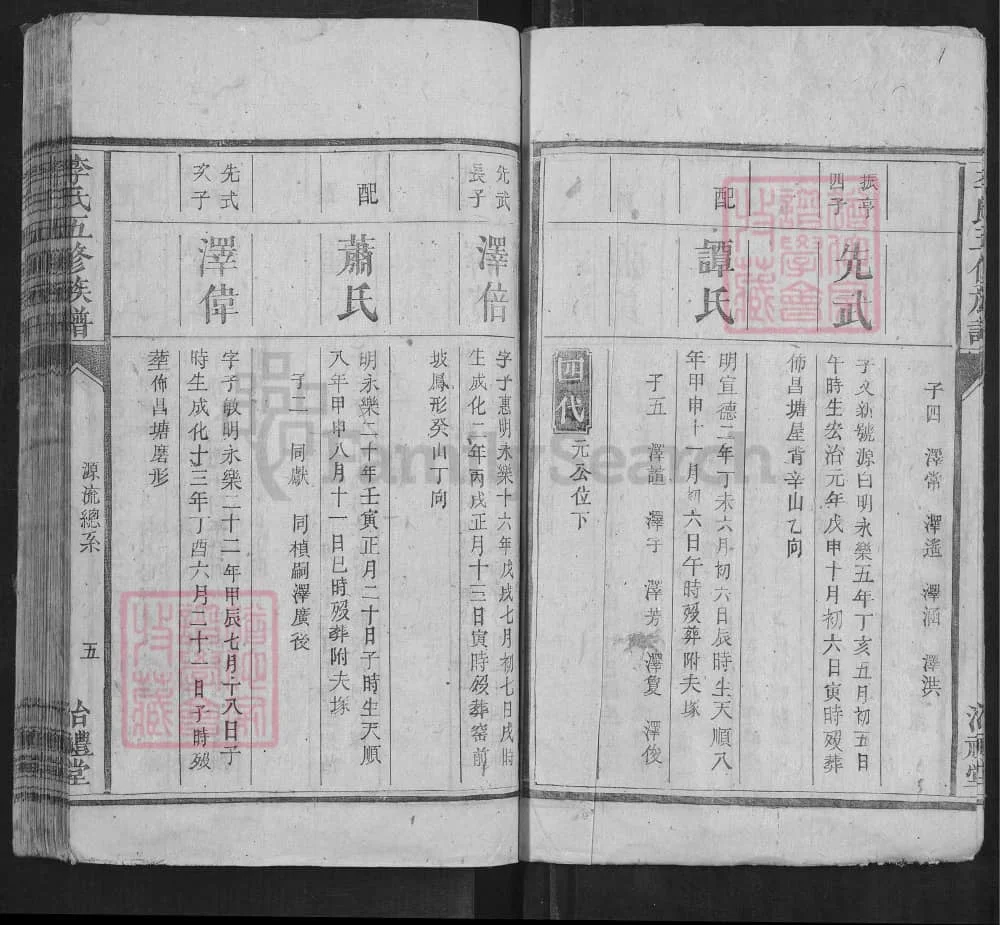 子四 澤常 澤遙 澤涵 澤洪
振亭
四子
先武
字文新號源白明永樂五年丁亥五月初五日
午時生宏治元年戊申十月初六日寅時歿葬
佈昌塘屋背辛山乙向
配
譚氏
明宣德二年丁未六月初六日辰時生天順八
年甲申十一月初六日午時歿葬附夫塚
子五 澤謹 澤予 澤芳 澤夐 澤俊
四代
元公位下
先武
長子
澤倍
字子惠明永樂十六年戊戌七月初七日戌時
生成化二年丙戌正月十三日寅時歿葬窑前
坡鳳形癸山丁向
配
蕭氏
明永樂二十年壬寅正月二十日子時生天順
八年甲申八月十一日巳時歿葬附夫塚
子二 同獻 同楨嗣澤廣後
先式
次子
澤偉
字子敏明永樂二十二年甲辰七月十八日子
時生成化十三年丁酉六月二十一日子時歿
塟佈昌塘磨形
李氏五修族譜
源流總系
五
治禮堂
FamilySearch